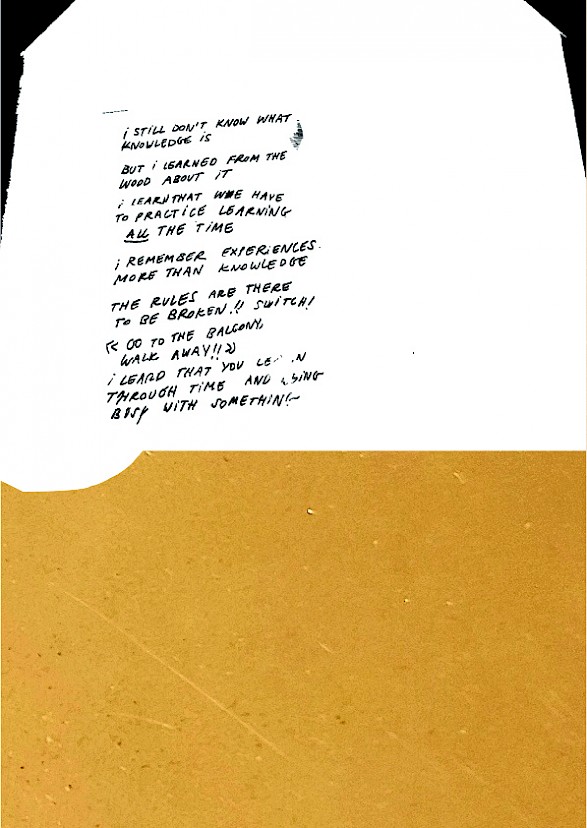 i STILL DON'T KNOW WHAT
KNOWLEDGE iS
BUT i LEARNED FROM THE
WOOD ABOUT iT
i LEARN THAT WE HAVE
TO PRACTiCE LEARNING
ALL THE TiME
i REMEMBER EXPERiENCES
MORE THAN KNOWLEDGE
THE RULES ARE THERE
TO BE BROKEN!! SWiTCH!
« GO TO THE BALCONY,
WALK AWAY!! »
i LEARD THAT YOU
THROUGH TiME AND
BUSY WiTH SOMETHiNG